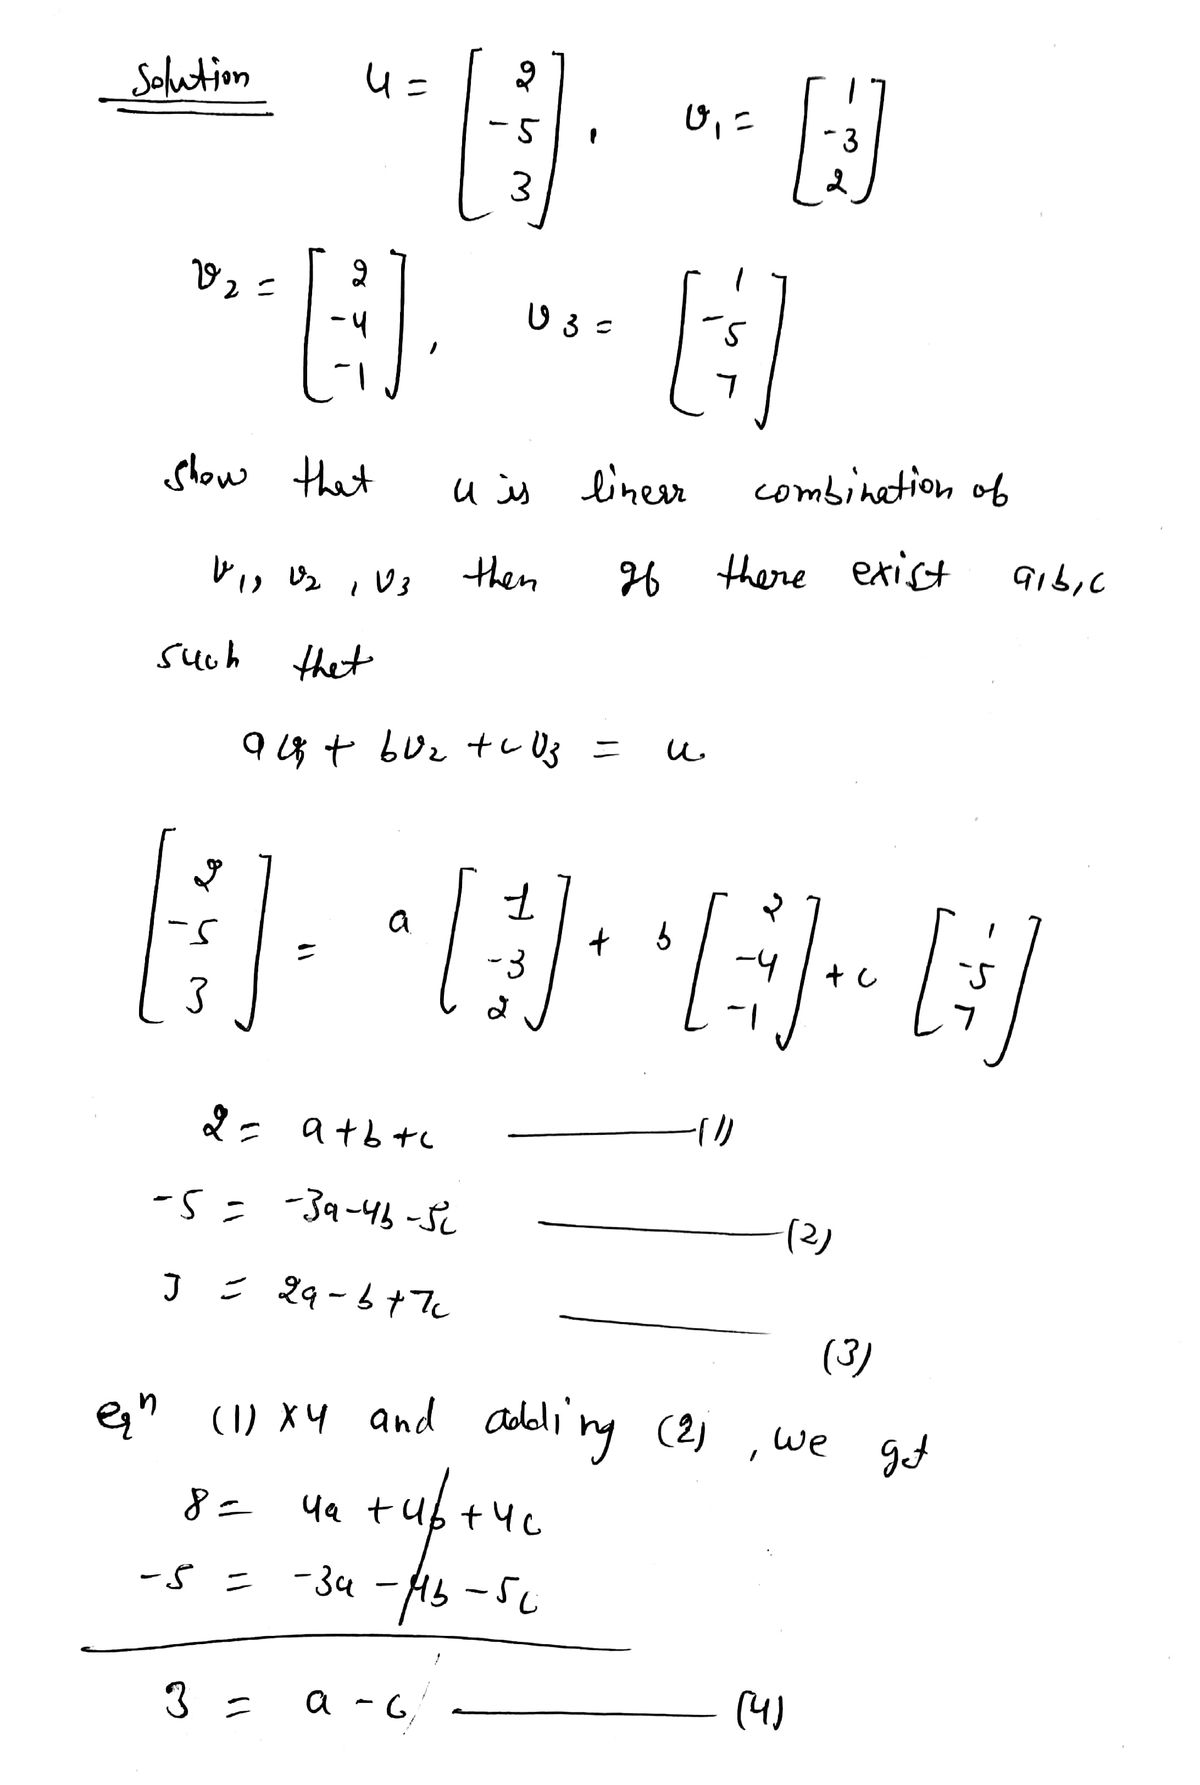 Solution u = [2 -5 3], v1 = [1 -3 2]
v2 = [2 -4 -1], v3 = [1 -5 7]
show that u is linear combination of
v1, v2, v3 then If there exist a,b,c
such that
a v1 + b v2 + c v3 = u
[2 -5 3] = a [1 -3 2] + b [2 -4 -1] + c [1 -5 7]
2 = a+b+c —— (1)
-5 = -3a-4b-5c —— (2)
3 = 2a-b+7c —— (3)
eqn (1) X 4 and adding (2), we get
8 = 4a + 4b + 4c
-5 = -3a - 4b - 5c
3 = a - c —— (4)